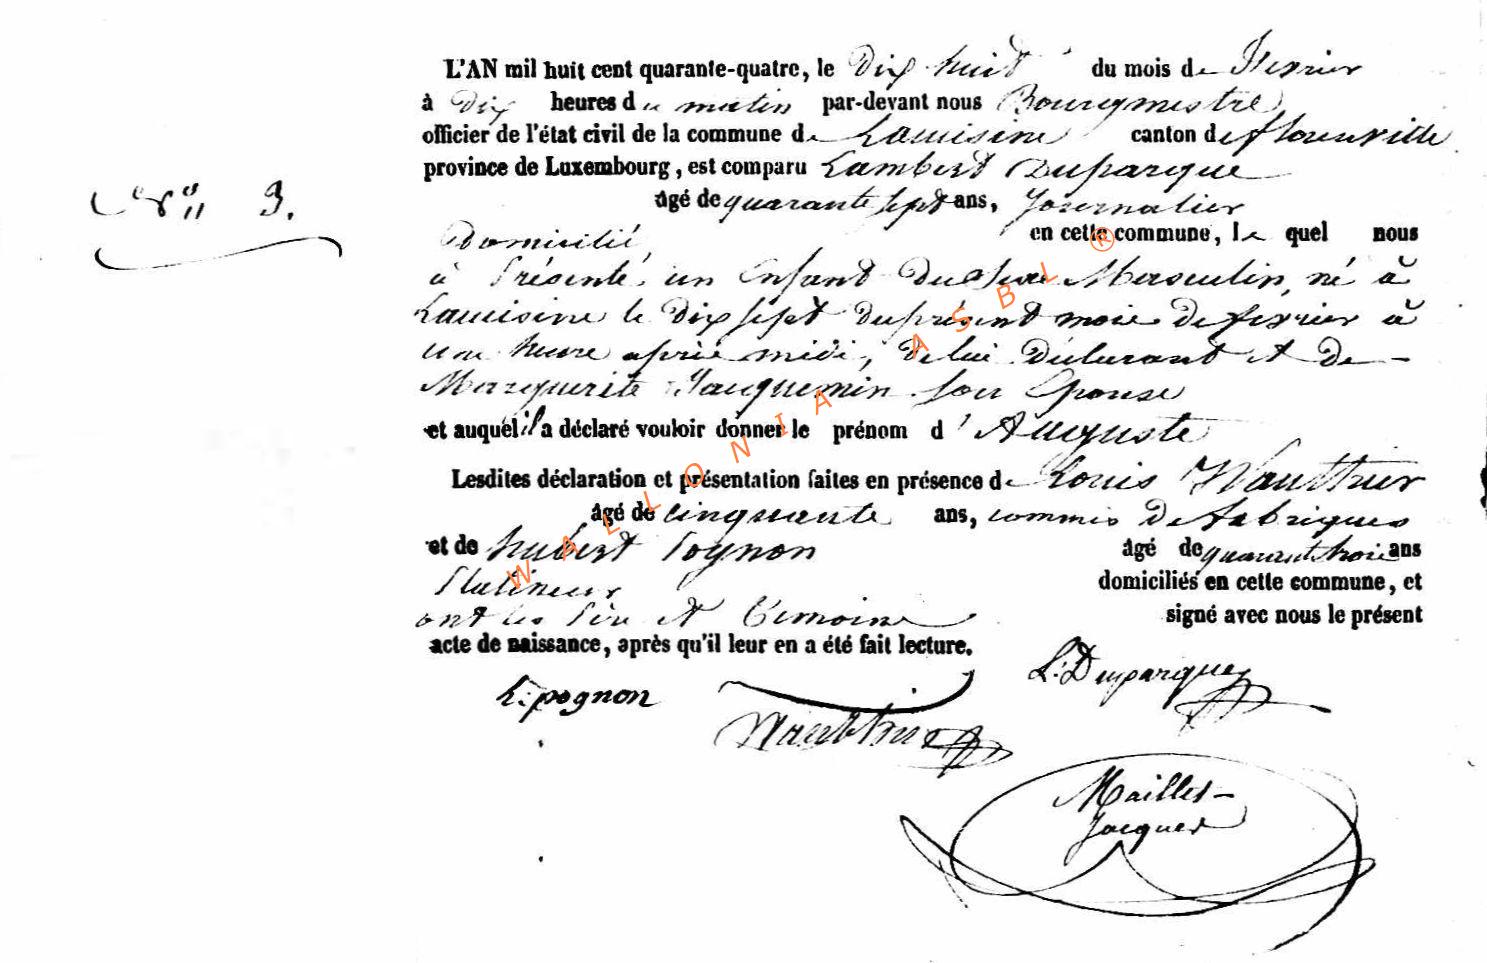 L'AN mil huit cent quarante-quatre, le Dix huit du mois de Fevrier
à Dix heures du matin par-devant nous Bourgmestre
officier de l'état civil de la commune de Lacuisine canton de florenville
province de Luxembourg, est comparu Lambert Duparque
N° 3.
âgé de quarante sept ans, Journalier
Domicilié en cette commune, le quel nous
à Présenté, un Enfant Du Sexe Masculin, né à
Lacuisine le Dix sept du présent mois de fevrier à
une heure après midi, de lui Déclarant et de
Marguerite Jacquemin son Epouse
et auquel il a déclaré vouloir donner le prénom d'Auguste
Lesdites déclaration et présentation faites en présence de Louis Wauthier
âgé de cinquante ans, commis De fabriques
et de hubert Pognon âgé de quarante trois ans
Platineur domiciliés en cette commune, et
ont les Père et Témoins signé avec nous le présent
acte de naissance, après qu'il leur en a été fait lecture.
h: pognon L: Duparque
Wauthier
Maillet-
Jacques
WALLONIA ASBL ®